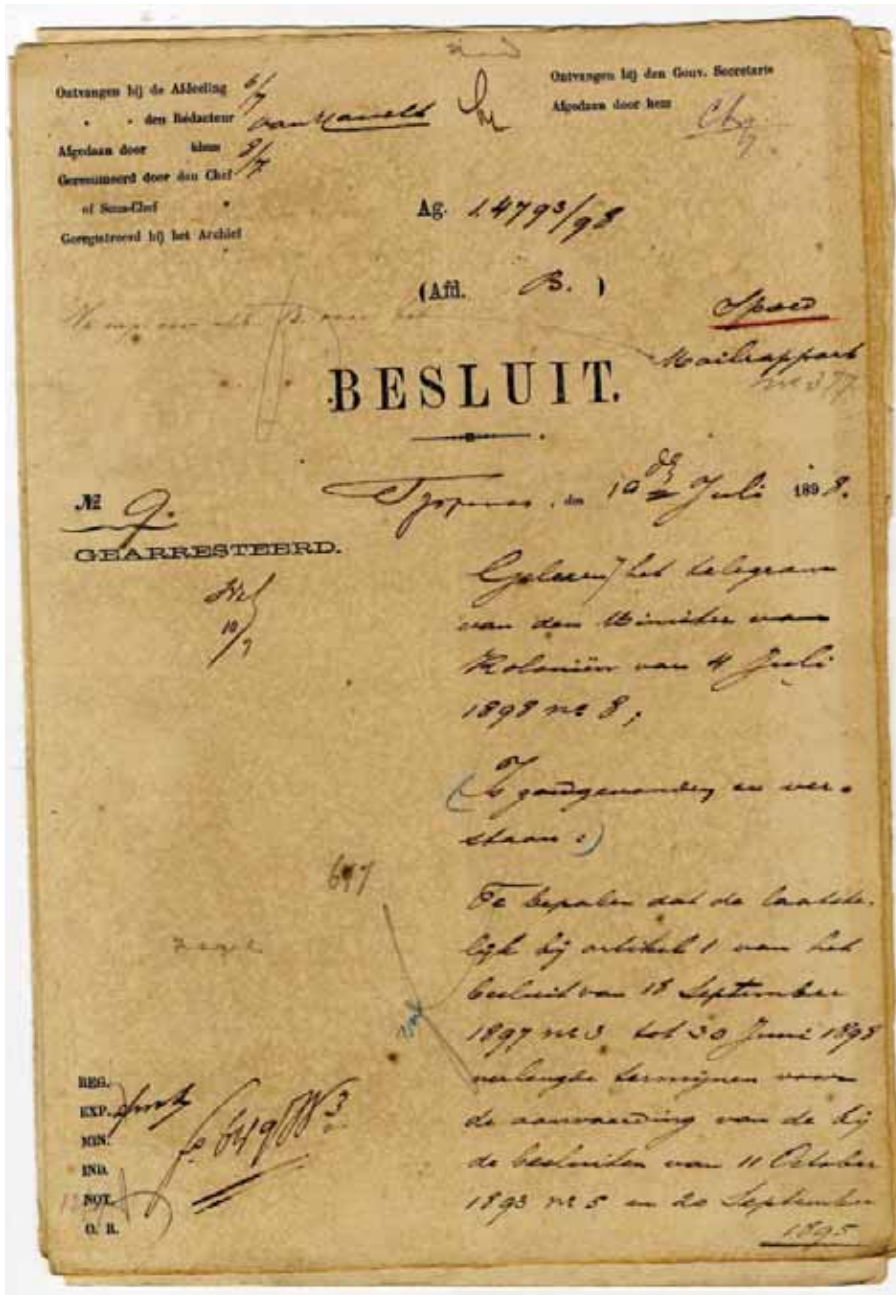 Ontvangen bij de Afdeeling 6/7
" " den Redacteur
Afgedaan door hem 8/7
Geresumeerd door den Chef
of Sous-Chef "
Geregistreerd bij het Archief
Ontvangen bij den Gouv. Secretaris
Afgedaan door hem
Ag. 14793/98
(Afd. B. )
Spoed
Mailrapport
no 377
BESLUIT.
No 9.
GEARRESTEERD.
10/7
, den 10de Juli 1898.
Gelezen het telegram
van den Minister van
Koloniën van 4 Juli
1898 no 8;
Is goedgevonden en ver-
staan:
Te bepalen dat de laatste-
lijk bij artikel 1 van het
besluit van 18 September
1897 no 3 tot 30 Juni 1898
verlengde termijnen voor
de aanvaarding van de bij
de besluiten van 11 October
1893 no 5 en 20 September
1895
647
zegel
REG.
EXP.
MIN.
IND.
NOT.
O. B.